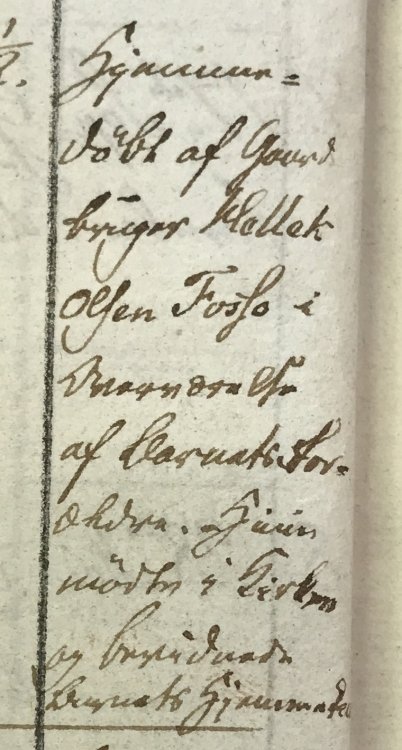 Hjemme=
döbt af Gaard
bruger Mellek
Olsen Fosso i
Overværelse
af Barnets For-
ældre. Hun
mödte i Kirken
og bevidnede
Barnets Hjemmedaab